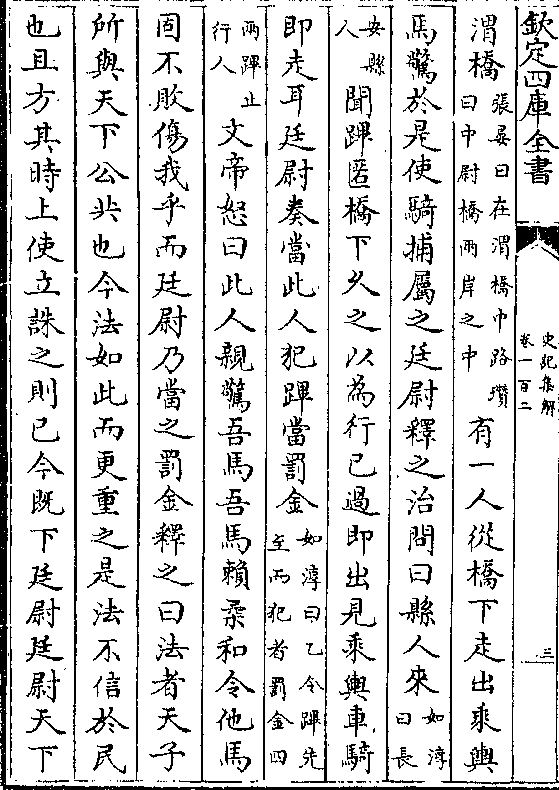 欽定四庫全書
史記集解
卷一百二
三
渭橋張晏曰在渭橋中路瓚曰中尉橋兩岸之中有一人從橋下走出乘輿
馬驚於是使騎捕屬之廷尉釋之治問曰縣人來如淳曰長
安縣人聞蹕匿橋下久之以為行已過即出見乘輿車騎
即走耳廷尉奏當此人犯蹕當罰金如淳曰乙令蹕先至而犯者罰金四
兩蹕止行人文帝怒曰此人親驚吾馬吾馬賴柔和令他馬
固不敗傷我乎而廷尉乃當之罰金釋之曰法者天子
所與天下公共也今法如此而更重之是法不信於民
也且方其時上使立誅之則已今既下廷尉廷尉天下